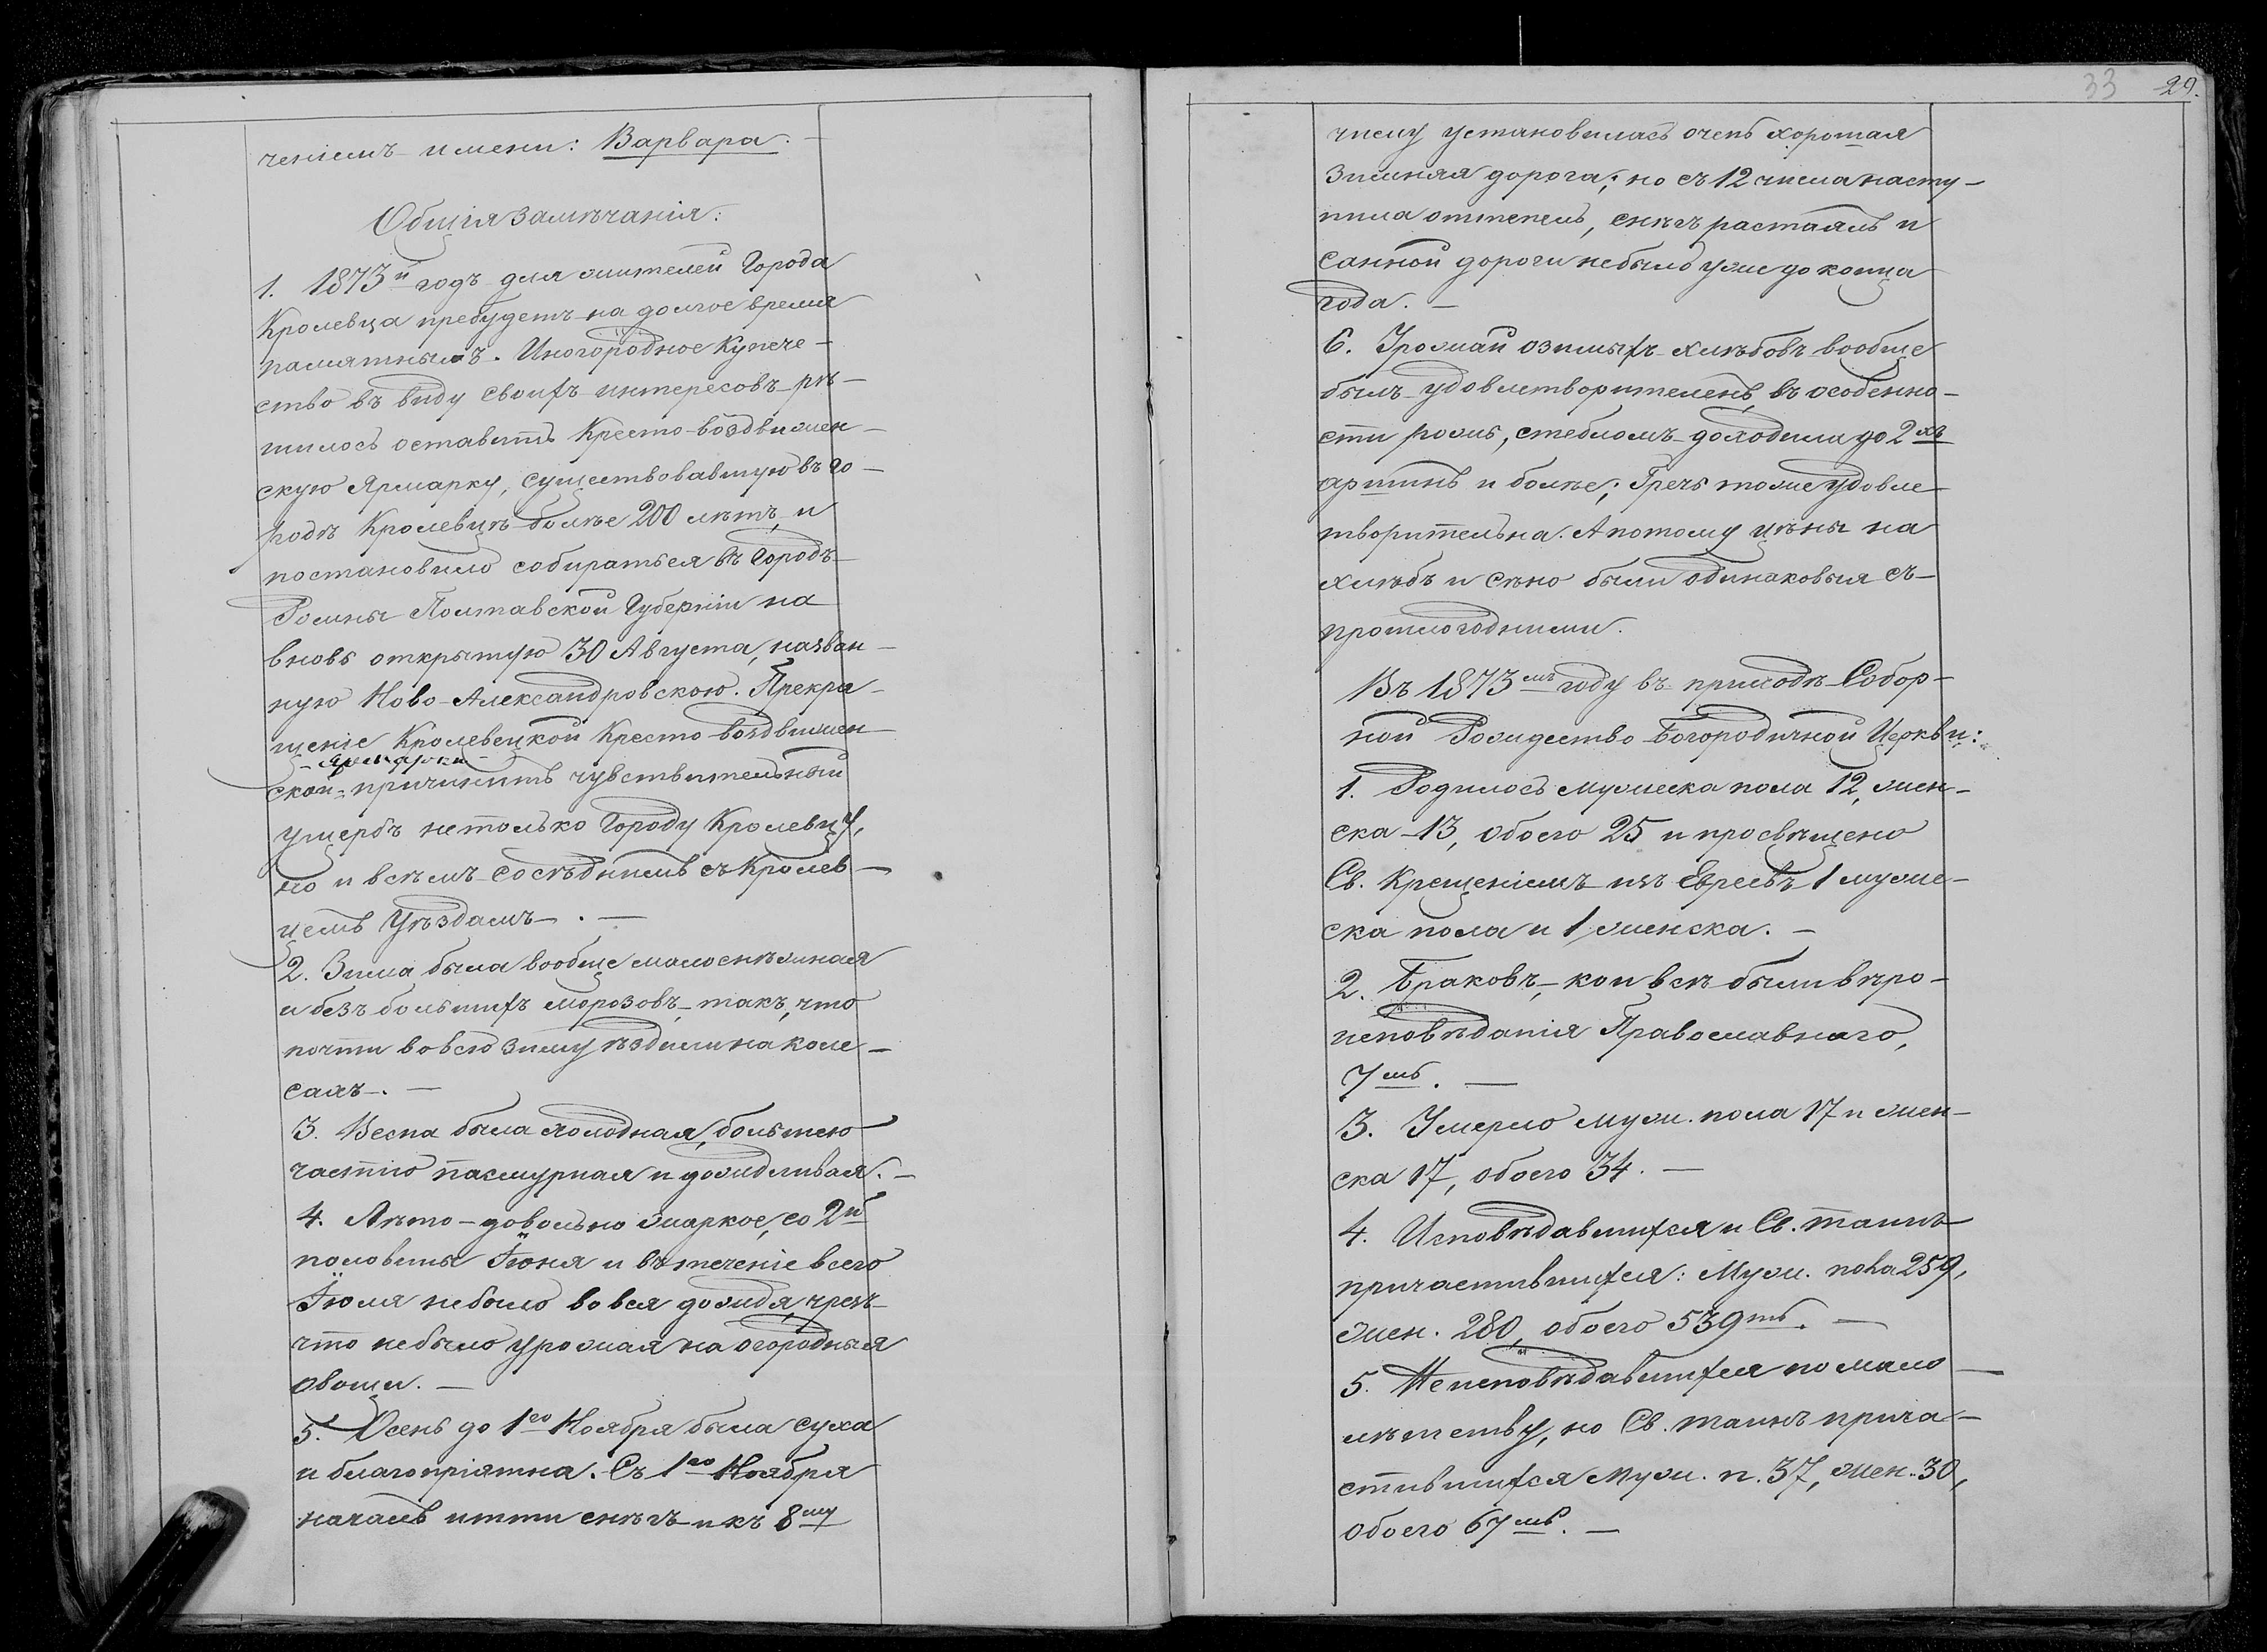 ченіемъ имени: Варвара. —
Общія замѣчанія:
1. 1873й годъ для жителей Города
Кролевца пребудетъ на долгое время
памятнымъ. Иногородное Купече-
ство въ виду своихъ интересовъ рѣ-
шилось оставить Кресто-воздвижен-
скую Ярмарку, существовавшую въ го-
родѣ Кролевцѣ болѣе 200 лѣтъ, и
постановило собираться въ Городъ
Ромны Полтавской Губерніи на
вновь открытую 30 Августа, назван-
ную Ново-Александровскою. Прекра-
щеніе Кролевецкой Кресто-воздвижен-
- Ярмарки -
ской - причинитъ чувствительный
ущербъ нетолько Городу Кролевцу,
но и всѣмъ сосѣднимъ съ Кролев-
цемъ Уѣздамъ. —
2. Зима была вообще малоснѣжная
и безъ большихъ морозовъ, — такъ, что
почти во всю зиму ѣздили на коле-
сахъ. —
3. Весна была холодная, большею
частію пасмурная и дождливая. —
4. Лѣто — довольно жаркое, со 2й
половины Іюня и въ теченіе всего
Іюля небыло вовся дождя, чрезъ
что небыло урожая на огородныя
овощи. —
5. Осень до 1го Ноября была суха
и благопріятна. Съ 1го Ноября
началъ итти снѣгъ и къ 8му
33 29.
числу установилась очень хорошая
зимняя дорога; но съ 12 числа насту-
пила оттепель, снѣгъ растаялъ и
санной дороги небыло уже до конца
года. —
6. Урожай озимыхъ хлѣбовъ вообще
былъ удовлетворителенъ, въ особенно-
сти рожь, стебломъ доходила до 2хъ
аршинъ и болѣе; Гречь тоже удовле-
творительна. А потому цѣны на
хлѣбъ и сѣно были одинаковыя съ
прошлогодними.
Въ 1873мъ году въ приходѣ Собор-
ной Рождество-Богородичной Церкви:
1. Родилось мужеска пола 12, жен-
ска — 13, обоего 25 и просвѣщено
Св. Крещеніемъ изъ Евреевъ 1 муже-
ска пола и 1 женска. —
2. Браковъ, — кои всѣ были вѣро-
исповѣданія Православнаго,
7мь. —
3. Умерло муж. пола 17 и жен-
ска 17, обоего 34. —
4. Исповѣдавшихся и Св. таинъ
причастившихся: Муж. пола 259,
жен. 280, обоего 539ть. —
5. Неисповѣдавшихся по мало-
лѣтству, но Св. таинъ прича-
стившихся муж. п. 37, жен. 30,
обоего 67мь. —